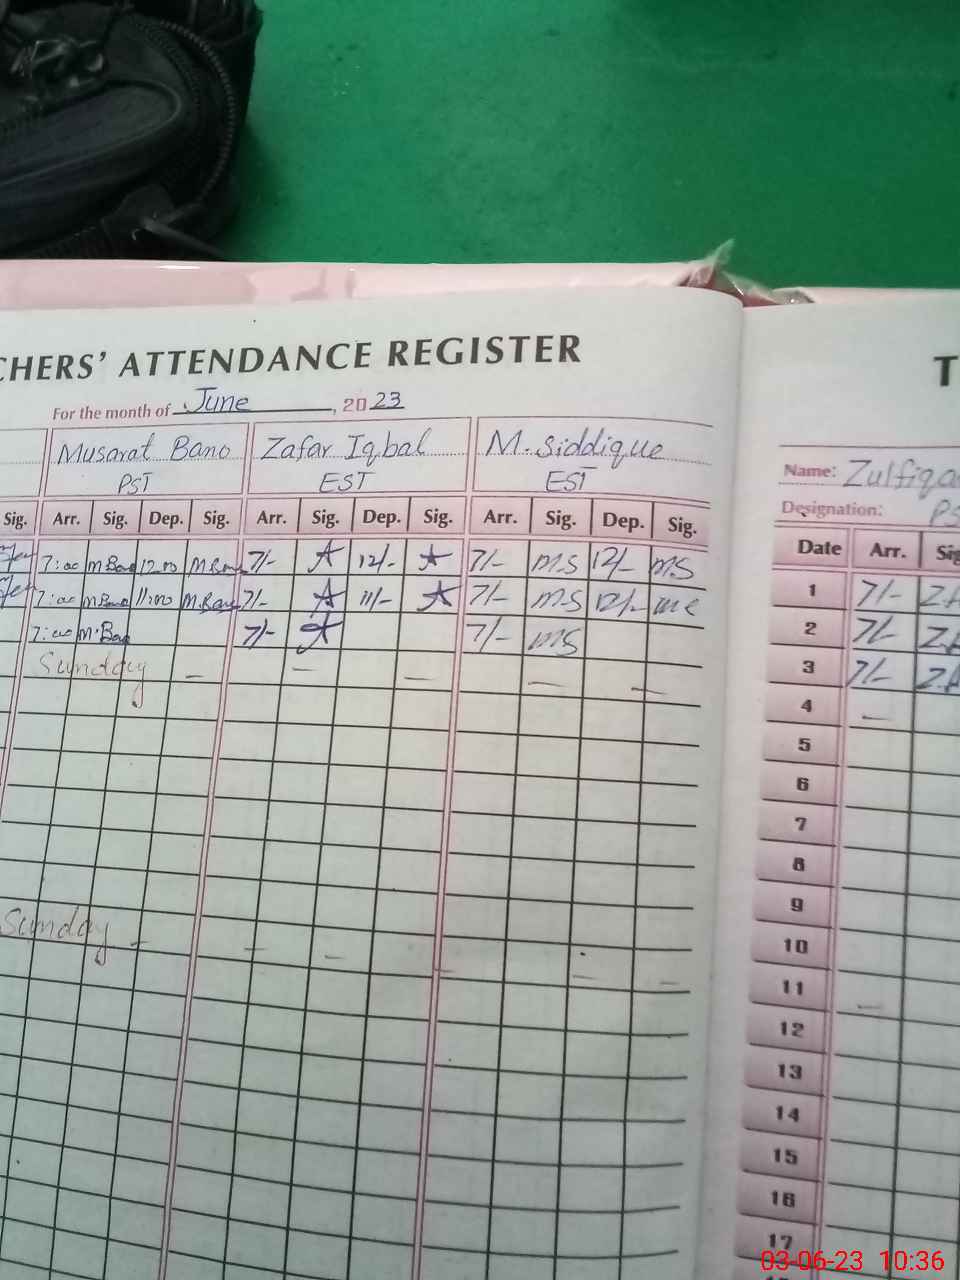 CHERS' ATTENDANCE REGISTER
For the month of June, 2023
Musarat Bano Zafar Iqbal M. Siddique
PST EST EST
Sig. Arr. Sig. Dep. Sig. Arr. Sig. Dep. Sig. Arr. Sig. Dep. Sig.
7:00 M.Bano 12:00 M.Bano 7/- 12/- 7/- M.S 12/- M.S
7:00 M.Bano 11:00 M.Bano 7/- 11/- 7/- M.S 12/-
7:00 M.Bano 7/- 7/- MS
Sunday - - - - -
Sunday - - - - - -
T
Name: Zulfiqa
Designation: PS
Date Arr. Sig
1 7/- Z.A
2 7/- Z.A
3 7/- Z.A
4 -
5
6
7
8
9
10
11 -
12
13
14
15
16
17
03-06-23 10:36